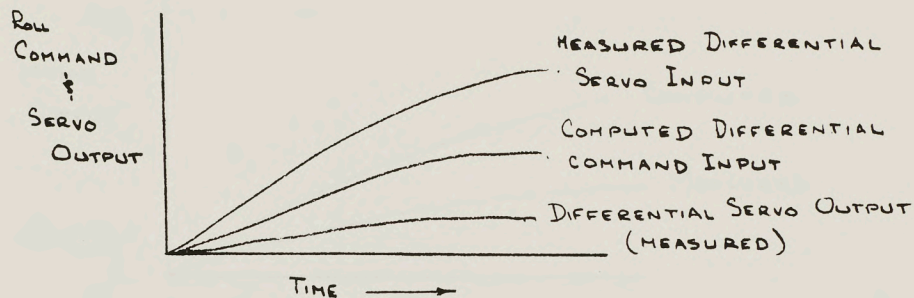 ROLL
COMMAND
&
SERVO
OUTPUT
MEASURED DIFFERENTIAL
SERVO INPUT
COMPUTED DIFFERENTIAL
COMMAND INPUT
DIFFERENTIAL SERVO OUTPUT
(MEASURED)
TIME